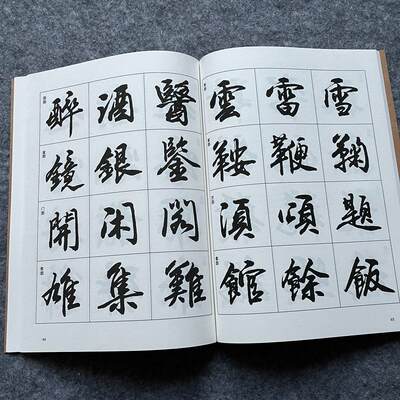 醉酒醫
鏡銀鑒
開閑閣
雄集
雲雷雪
鞍鞭鞠
須頌題
館餘飯